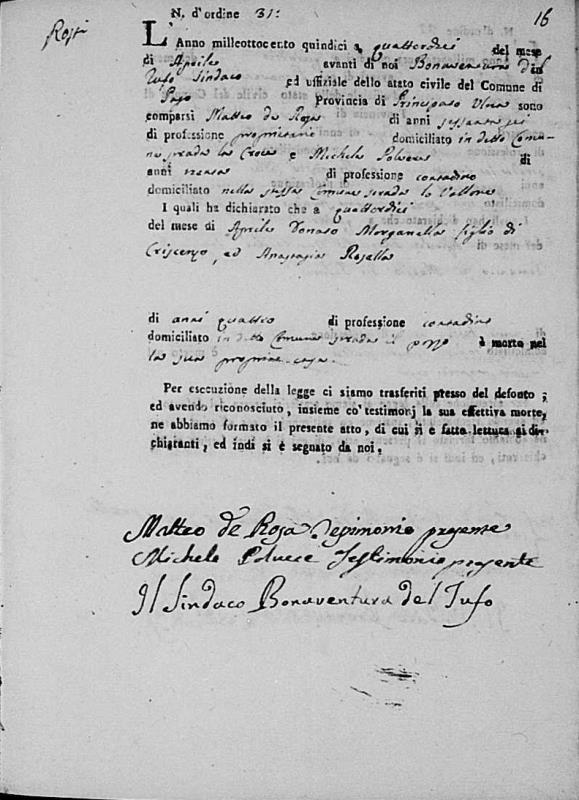 N. d'ordine 31:
16
L'Anno millottocento quindici a quattordici del mese
di Aprile avanti di noi Bonaventura del
Tufo Sindaco ed uffiziale dello stato civile del Comune di
Pago Provincia di Principato Ultra sono
comparsi Matteo de Rosa di anni sessanta sei
di professione proprietario domiciliato in detto Comu-
ne strada la Croce e Michele Polvere di
anni trenta di professione contadino
domiciliato nello stesso Comune strada lo Vallone
I quali ha dichiarato che a quattordici
del mese di Aprile Donato Morganella figlio di
Criscenzo, ed Anastasia Rosella
di anni quattro di professione contadino
domiciliato in detto Comune strada il pozzo è morto nel
la sua propria casa.
Per esecuzione della legge ci siamo trasferiti presso del defonto;
ed avendo riconosciuto, insieme co' testimonj la sua effettiva morte,
ne abbiamo formato il presente atto, di cui si è fatta lettura ai di-
chiaranti, ed indi si è segnato da noi.
Matteo de Rosa Testimonio presente
Michele Polvere Testimonio presente
Il Sindaco Bonaventura del Tufo